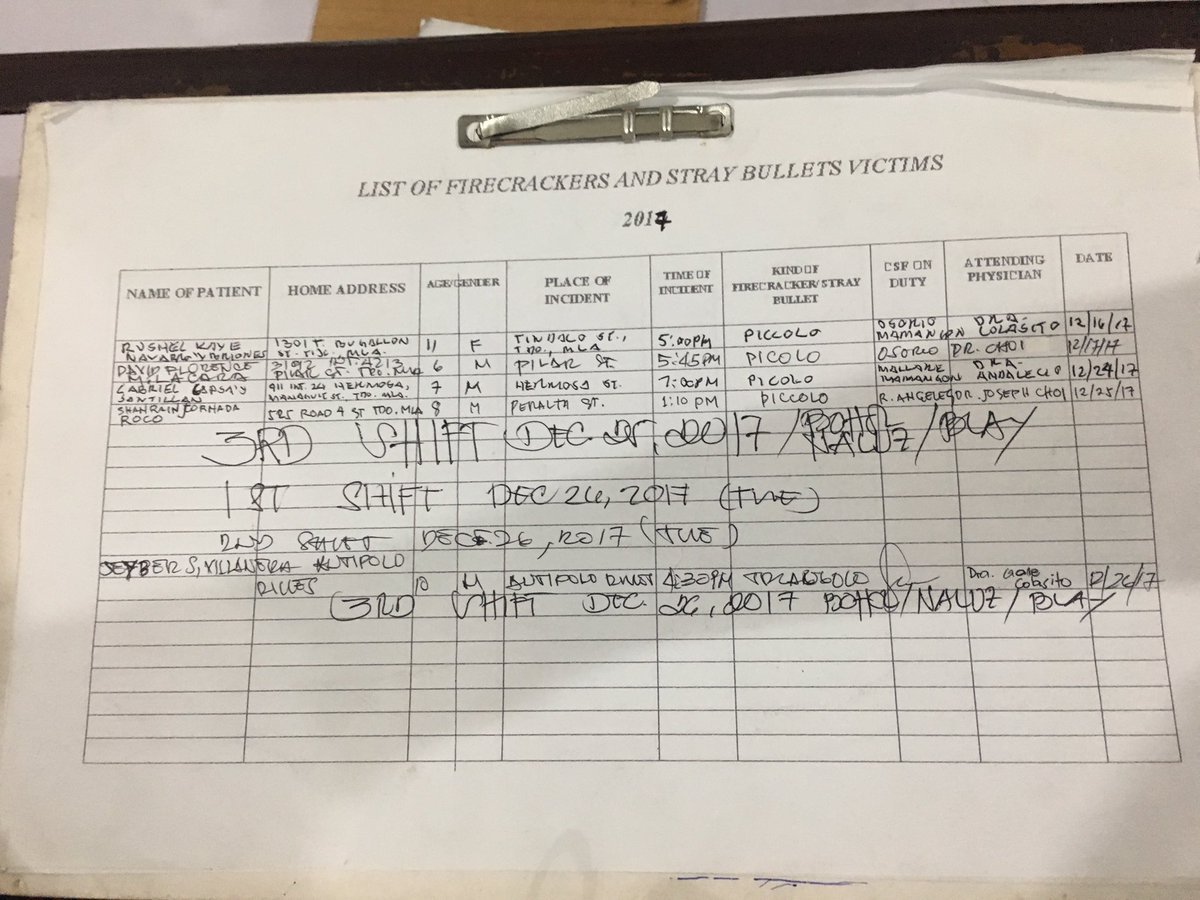 LIST OF FIRECRACKERS AND STRAY BULLETS VICTIMS
2017
NAME OF PATIENT HOME ADDRESS AGE/GENDER PLACE OF INCIDENT TIME OF INCIDENT KIND OF FIRECRACKER/STRAY BULLET CSF ON DUTY ATTENDING PHYSICIAN DATE
RUSHEL KAYE 1301 T. BUGALLON 11 F TINDALO ST., TDO., MLA 5:00PM PICCOLO OSORIO MAMANGON DRA. COLASITO 12/16/17
NAVARRO Y BRIONES ST. MLA.
DAVID FLORENCE PILAR ST. TDO. MLA 6 M PILAR ST. 5:45PM PICOLO OSORIO DR. CHOI 12/17/17
GABRIEL 911 INT. 24 HERMOSA, 7 M HERMOSA ST. 7:00PM PICOLO MAMANGON DRA. ANDALECIO 12/24/17
SANTILLAN ST., TDO. MLA.
SHANRAIN 525 ROAD 4 ST TDO. MLA 8 M PERALTA ST. 1:10 PM PICCOLO R. ANGELES DR. JOSEPH CHOI 12/25/17
ROCO
3RD SHIFT DEC 25, 2017 / BOHOL / NALUZ / BLAY
1ST SHIFT DEC 26, 2017 (TUE)
2ND SHIFT DEC 26, 2017 (TUE)
S. VILLANERA ANTIPOLO
10 M ANTIPOLO RIZAL 4:30PM Dra. Colasito 12/26/17
(3RD SHIFT DEC. 26, 2017 BOHOL / NALUZ / BLAY